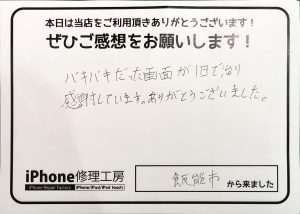 本日は当店をご利用頂きありがとうございます!
ぜひご感想をお願いします!
バキバキだった画面が1日で治り
感謝しています。ありがとうございました。
iPhone修理工房
iPhone Repair Factory
iPhone/iPad/iPod touch
飯能市
から来ました